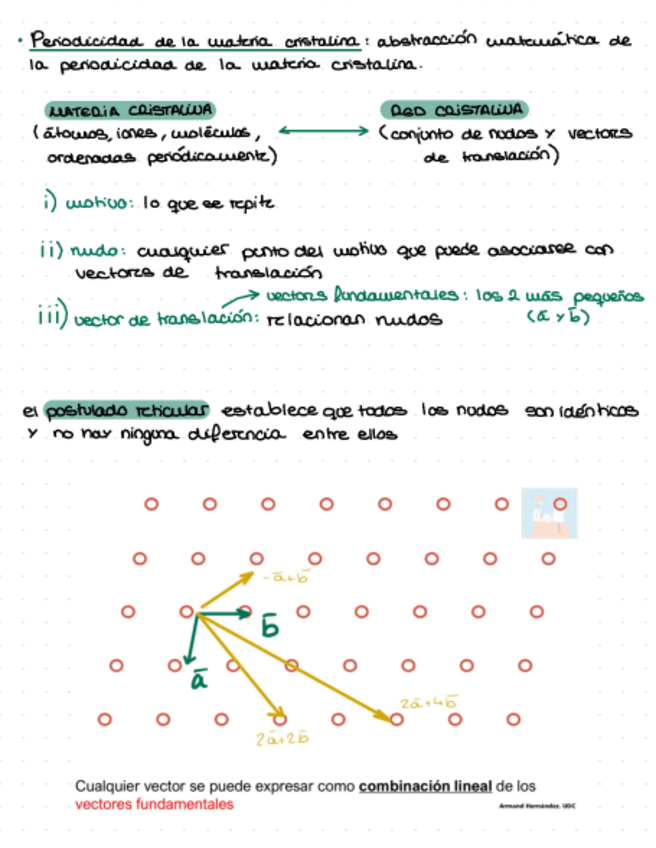 · Periodicidad de la materia cristalina: abstracción matemática de
la periodicidad de la materia cristalina.
MATERIA CRISTALINA
RED CRISTALINA
(átomos, iones, moléculas,
ordenadas periódicamente)
(conjunto de nudos y vectores
de translación)
i) motivo: lo que se repite
ii) nudo: cualquier punto del motivo que puede asociarse con
vectores de translación
vectores fundamentales: los 2 más pequeños
(ā y b̄)
iii) vector de translación: relacionan nudos
el postulado reticular establece que todos los nudos son idénticos
y no hay ninguna diferencia entre ellos
-ā+b̄
b̄
ā
2ā+4b̄
2ā+2b̄
Cualquier vector se puede expresar como combinación lineal de los
vectores fundamentales
Armand Hernández. UDC